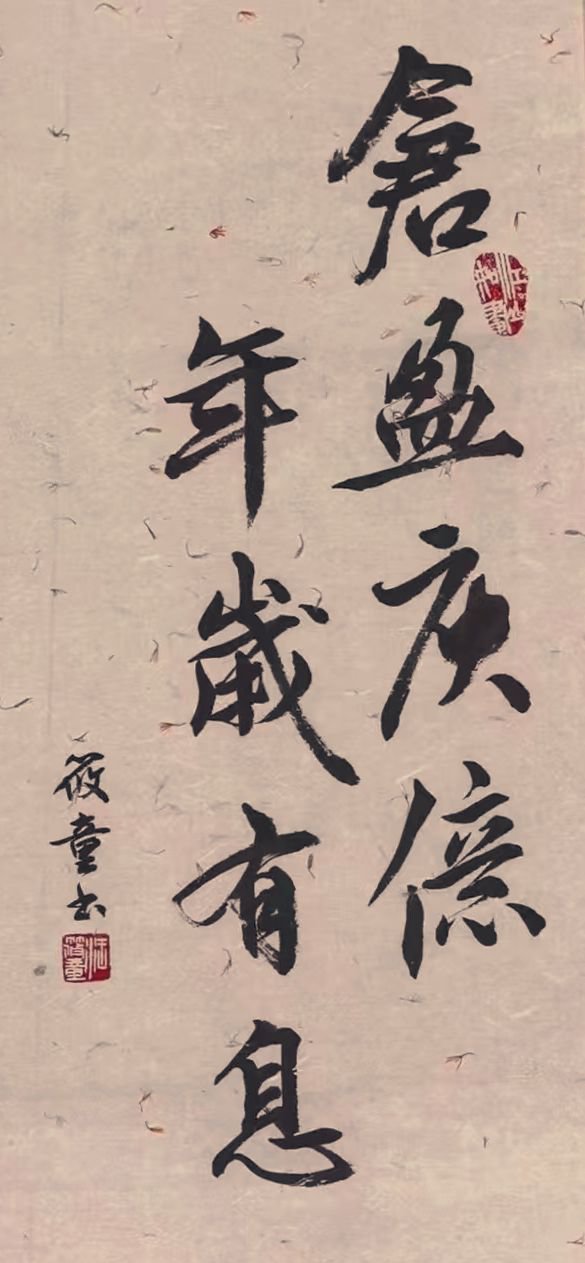 倉盈庾億
年歲有息
筱童书